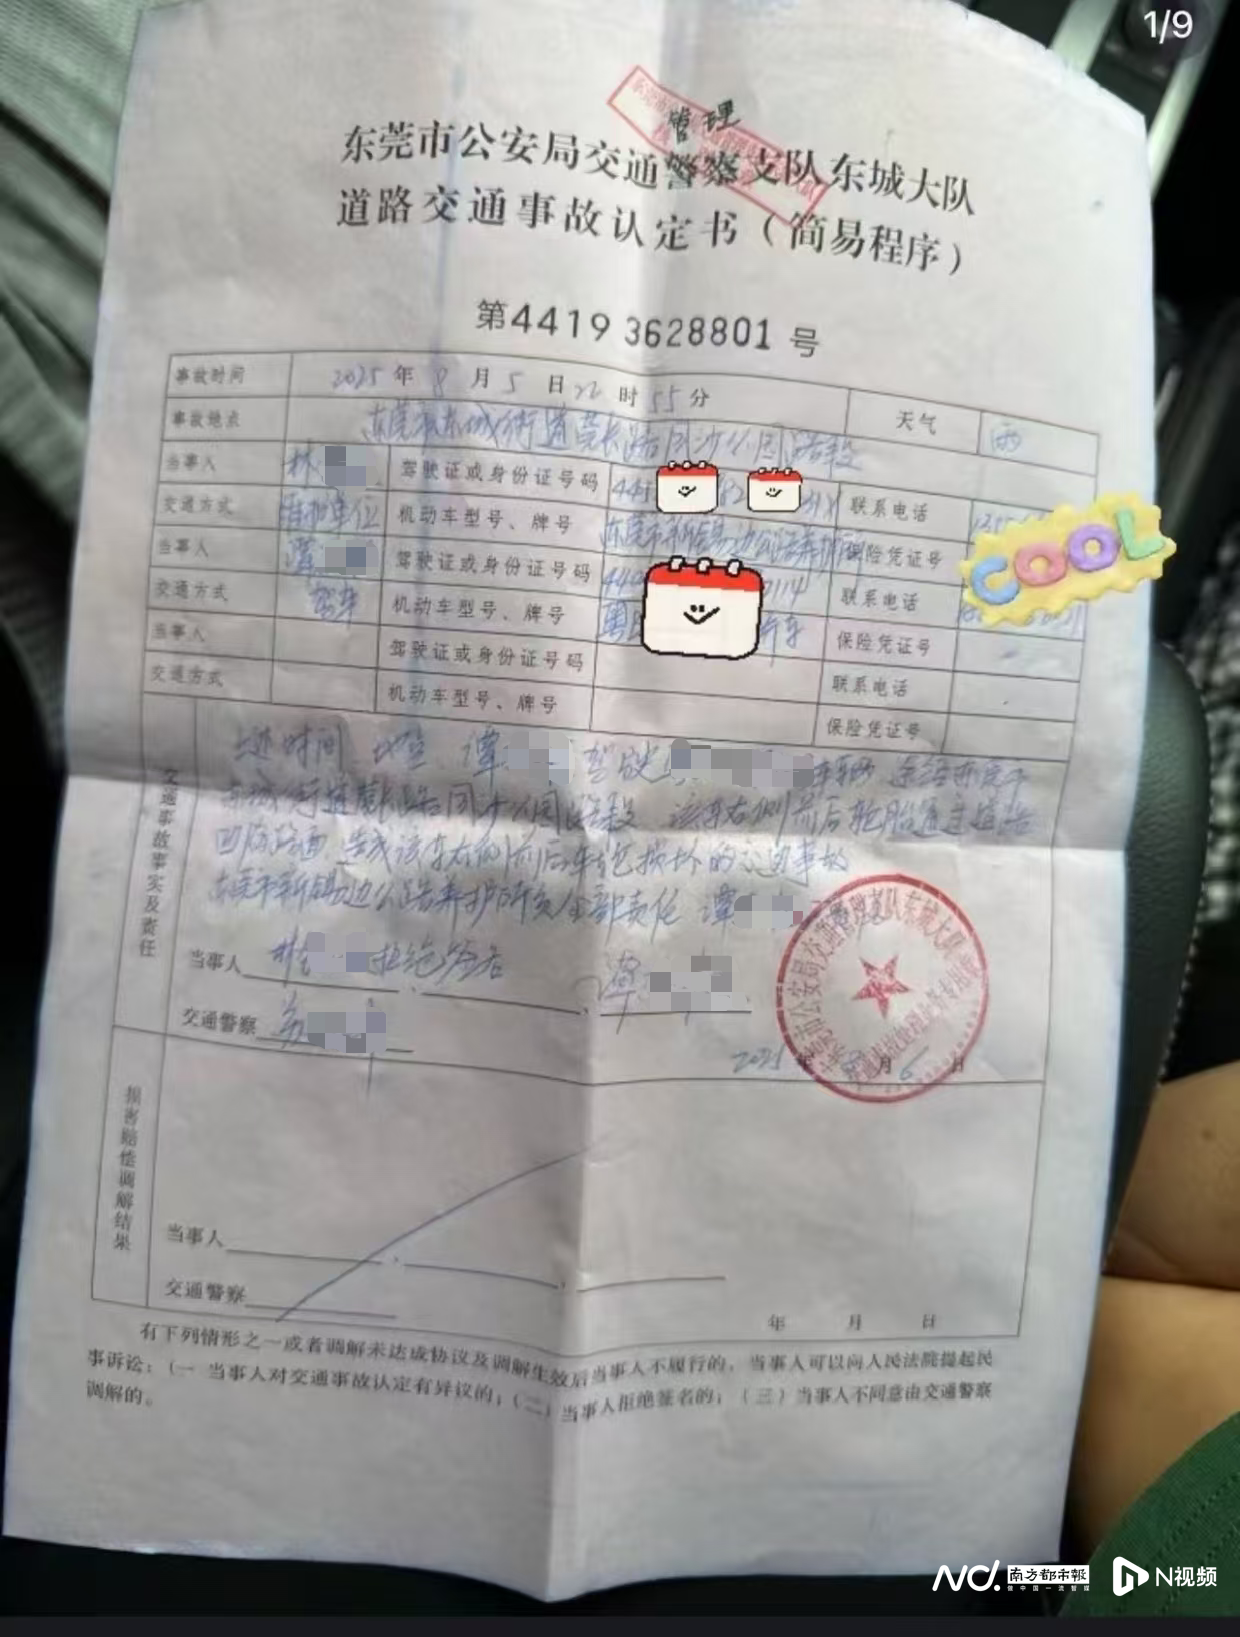 1/9
管理
东莞市公安局交通警察支队东城大队
道路交通事故认定书（简易程序）
第44193628801号
事故时间 2025年8月5日22时55分 天气 雨
事故地点 东莞市东城街道莞长路同沙公园路段
当事人 林 驾驶证或身份证号码 联系电话
交通方式 机动车型号、牌号 东莞市新锡边公路养护所 保险凭证号
当事人 谭 驾驶证或身份证号码 联系电话
交通方式 驾车 机动车型号、牌号 保险凭证号
当事人 驾驶证或身份证号码 联系电话
交通方式 机动车型号、牌号 保险凭证号
COOL
交通事故事实及责任
上述时间 地点 谭 驾驶 车辆 途经东莞市
东城街道莞长路同沙公园路段 该车右侧前后轮胎通过道路
凹陷路面 造成该车右侧前后车轮损坏的交通事故
东莞市新锡边公路养护所负全部责任 谭
当事人 林 拒绝签名 、 、 谭
交通警察
2025年8月6日
东莞市公安局交通管理支队东城大队
损害赔偿调解结果
当事人
交通警察
年 月 日
有下列情形之一或者调解未达成协议及调解生效后当事人不履行的，当事人可以向人民法院提起民
事诉讼：（一 当事人对交通事故认定有异议的；（二）当事人拒绝签名的；（三）当事人不同意由交通警察
调解的。
南方都市报
做中国一流智媒
N视频